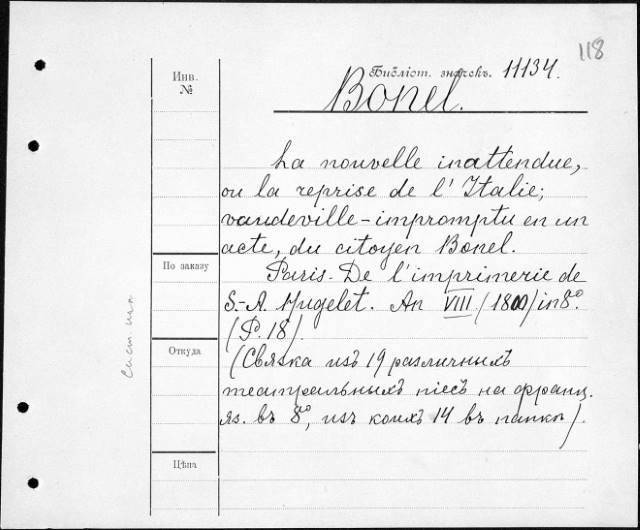 118
Инв. №
Библіот. значокъ. 11134.
Bonel.
La nouvelle inattendue,
ou la reprise de l'Italie;
vaudeville-impromptu en un
acte, du citoyen Bonel.
По заказу
Paris. De l'imprimerie de
S.-A. Hugelet. An VIII /1800/ in 8°.
(P. 18).
Откуда
(Связка изъ 19 различныхъ
театральныхъ піесъ на франц.
яз. въ 8°, изъ коихъ 14 въ папкѣ).
Цѣна